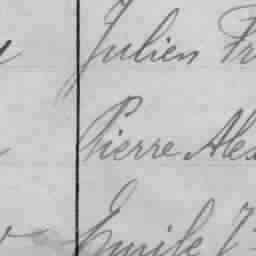 Julien Fr
Pierre Alex
Emile J